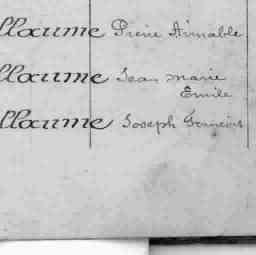 llaume Pierre Aimable
llaume Jean Marie
Emile
llaume Joseph François